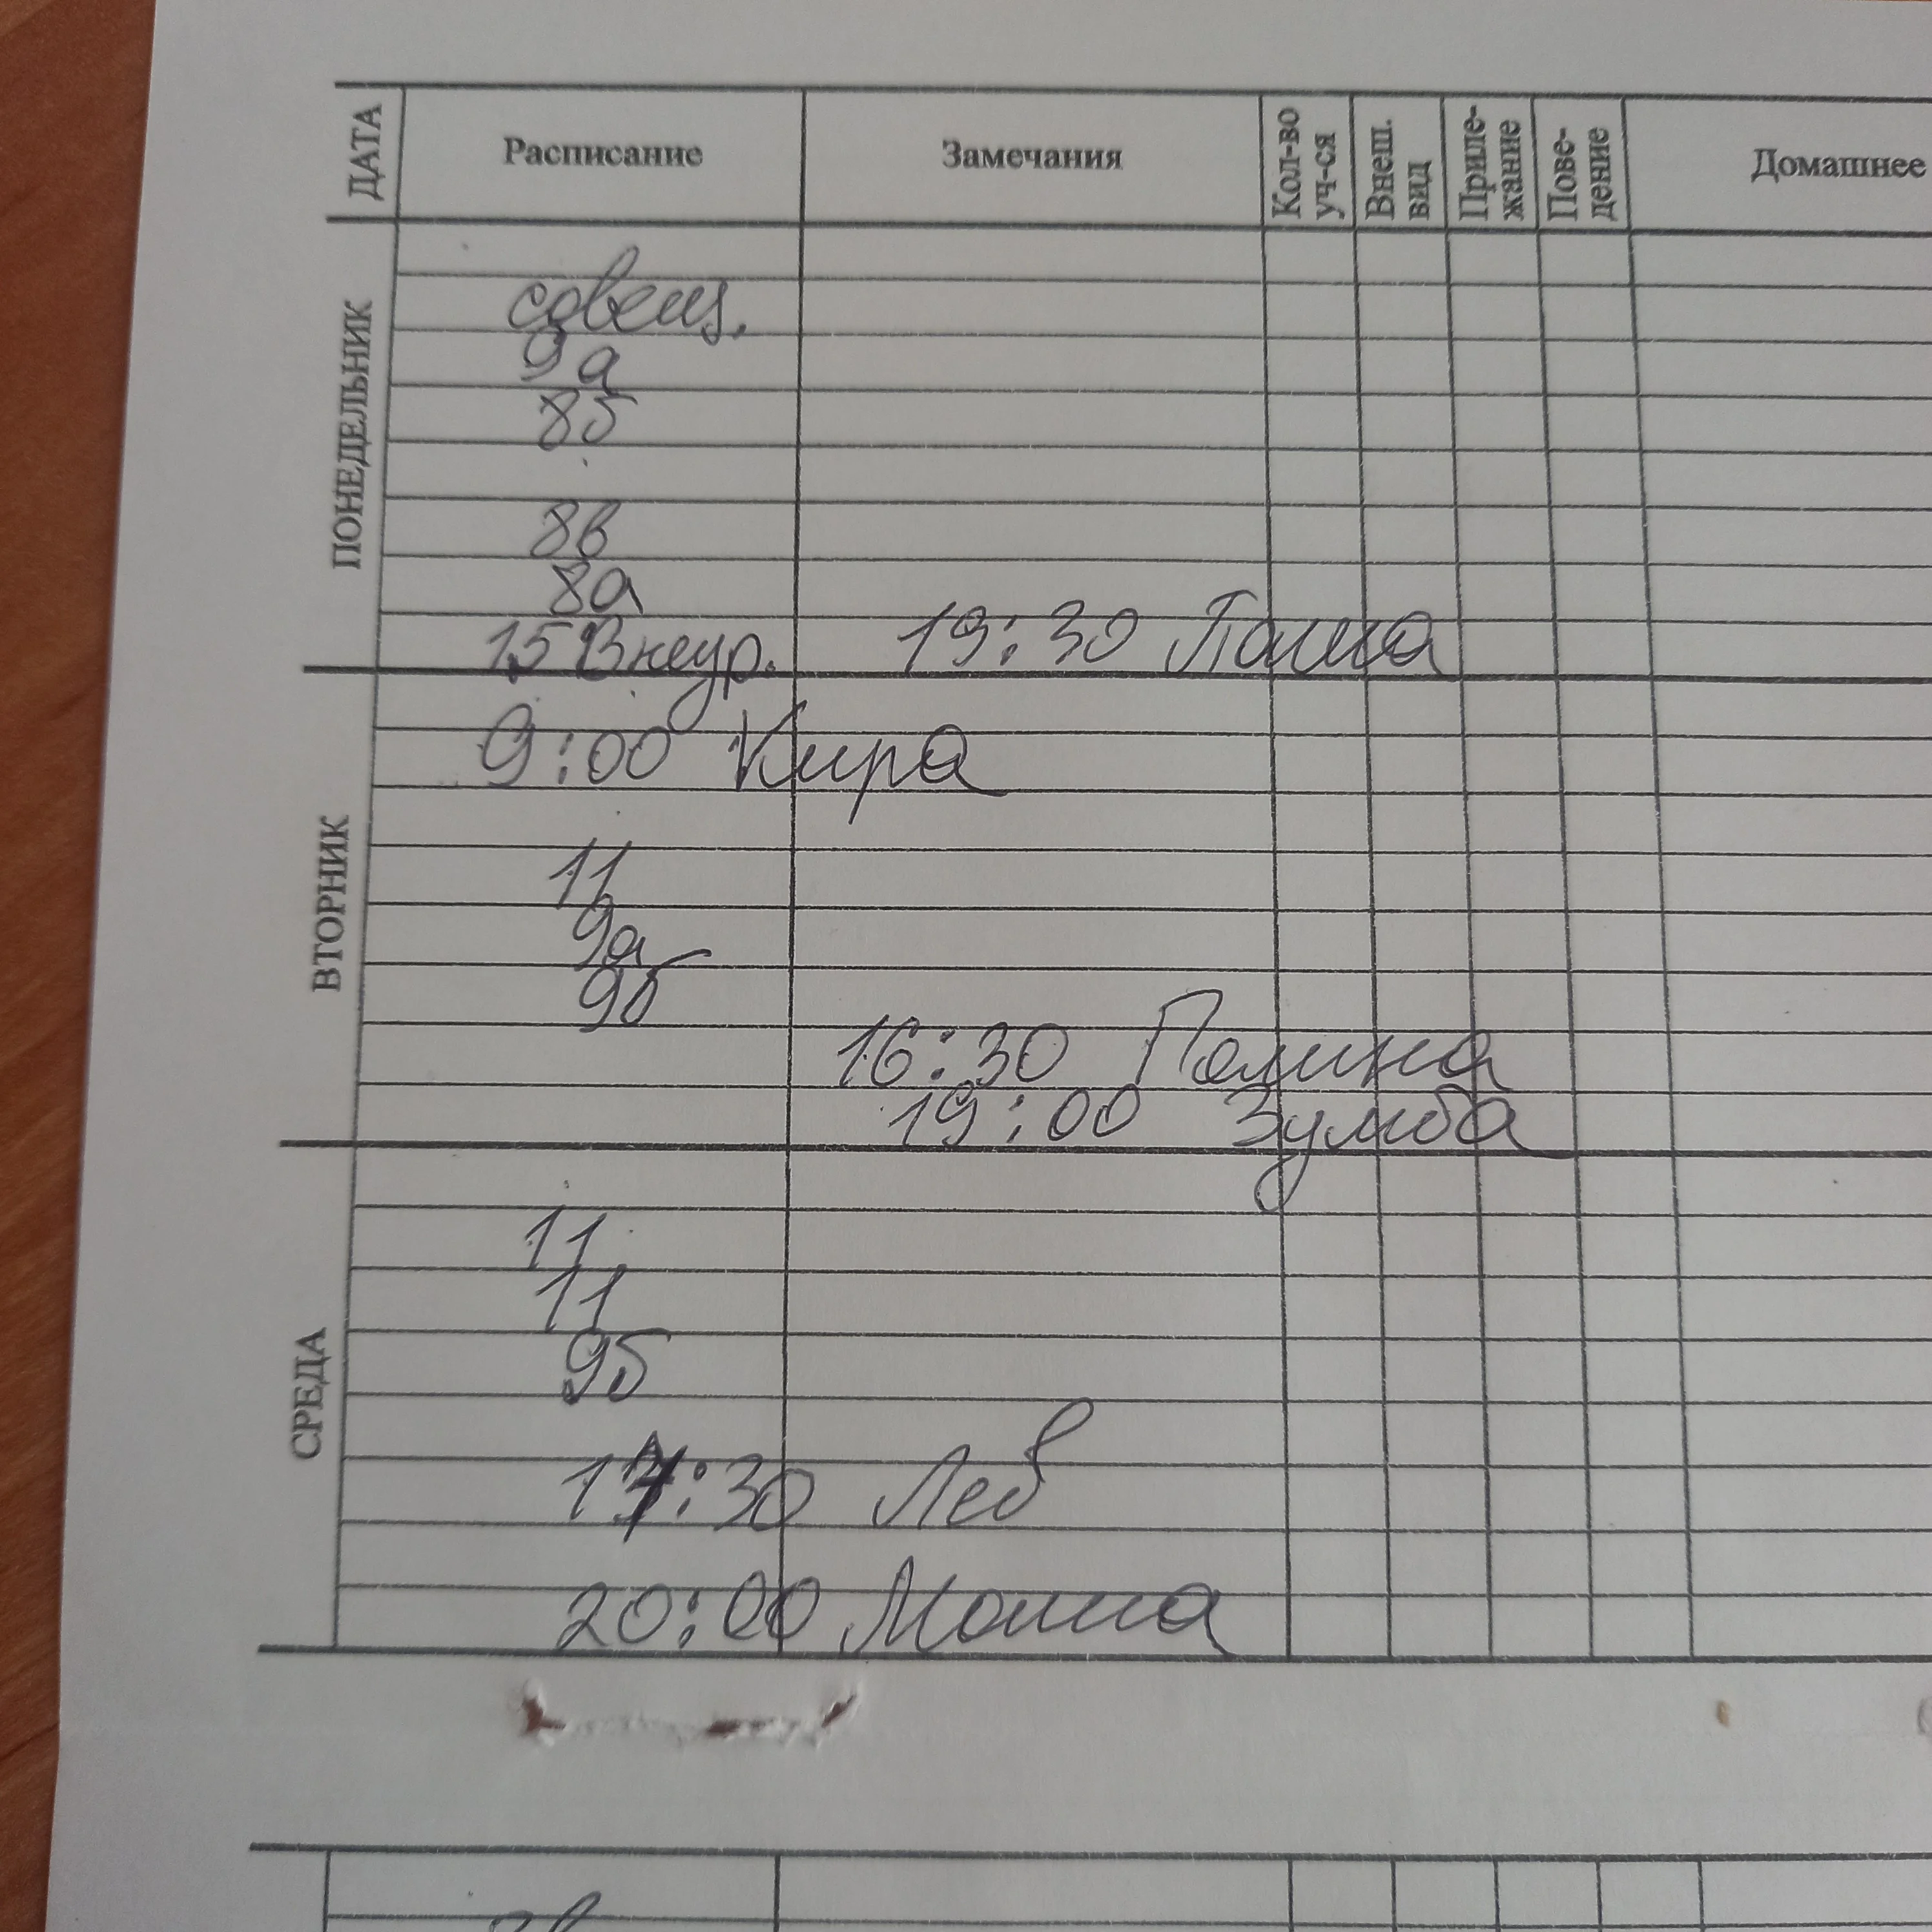 ДАТА Расписание Замечания Кол-во уч-ся Внеш. вид Приле- жание Пове- дение Домашнее
ПОНЕДЕЛЬНИК
совещ.
9а
8б
8в
8а
15 Внеур. 19:30
ВТОРНИК
9:00 Кира
11
9а
9б
16:30 Полина
19:00 Зумба
СРЕДА
11
11
9б
:30 Лев
20:00 Маша